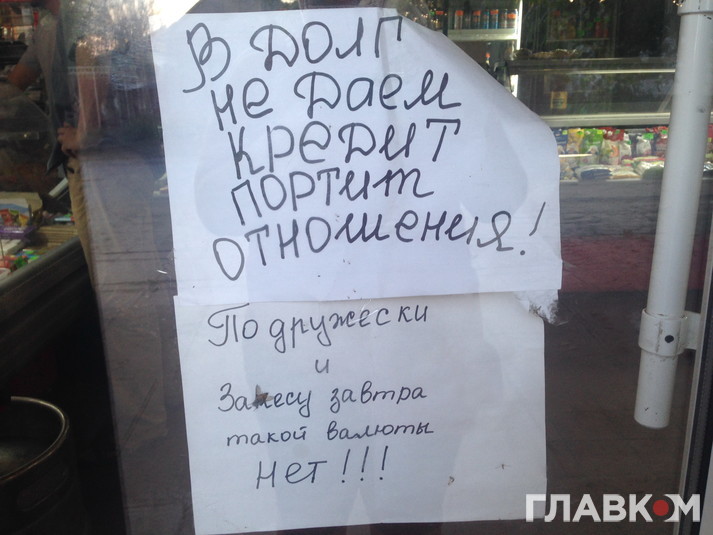 В ДОЛГ
не даем
кредит
портит
отношения!
По дружески
и
Занесу завтра
такой валюты
нет!!!
ГЛАВКОМ